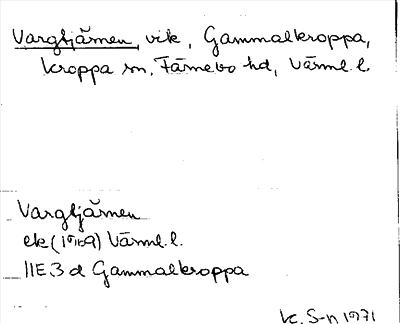 Vargtjärnen, vik, Gammalkroppa,
Kroppa sn, Färnebo hd, Värml. l.
Vargtjärnen
ek (1969) Värml. l.
11E 3 d Gammalkroppa
K. S-n 1971